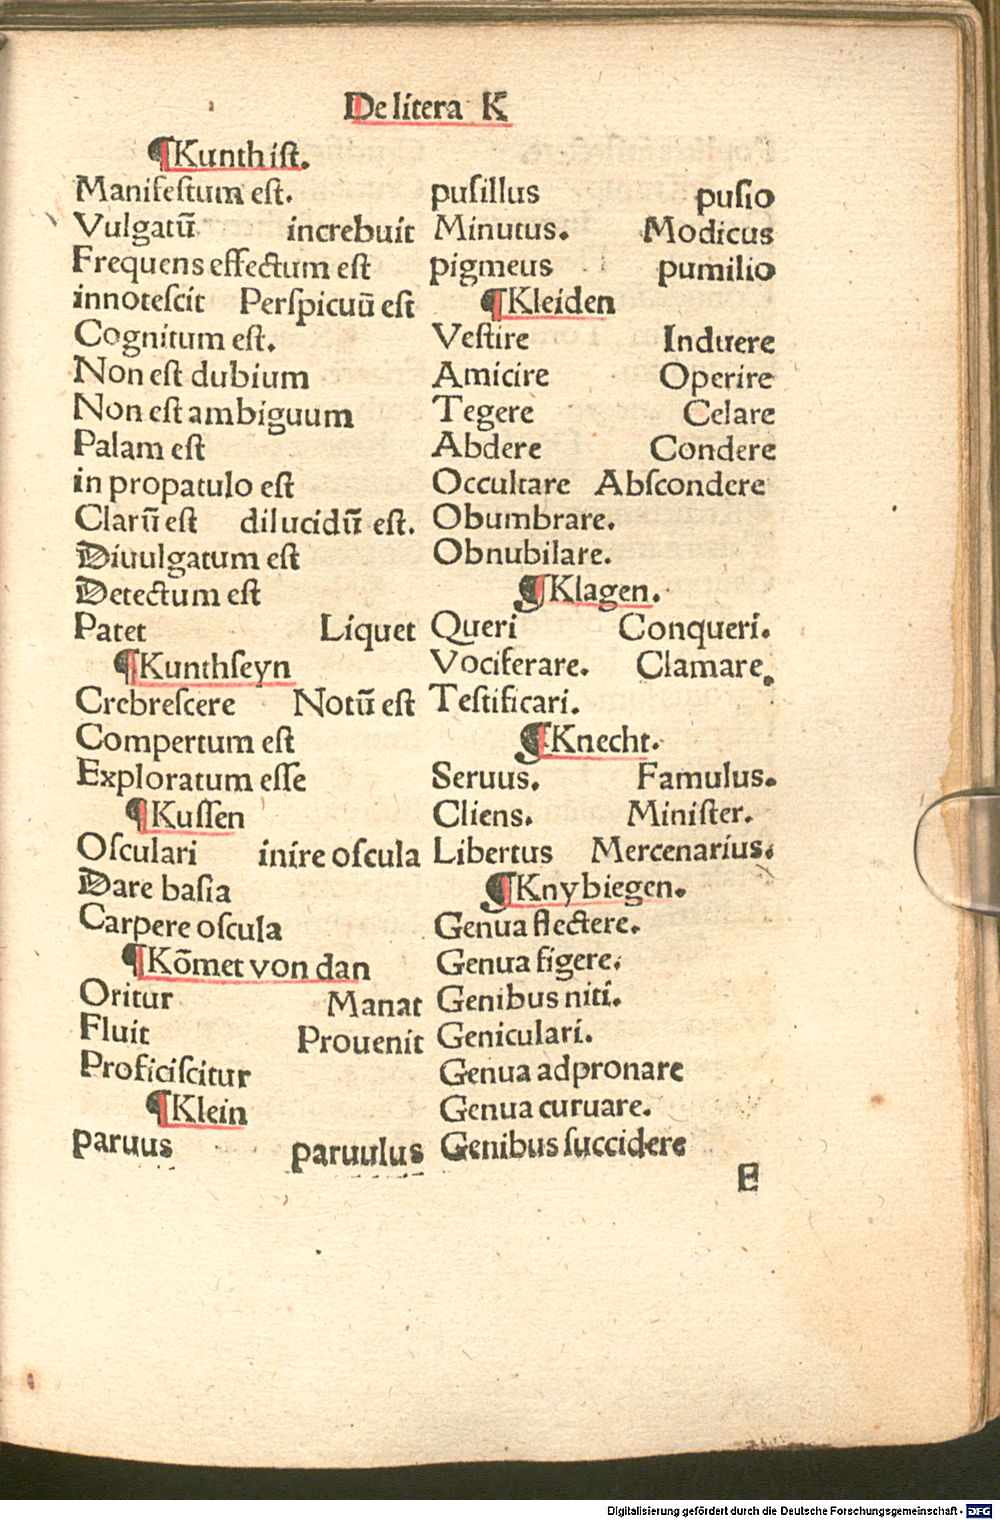 De litera K
¶Kunth iſt.
Manifeſtum eſt.
Vulgatū increbuit
Frequens effectum eſt
innoteſcit Perſpicuū eſt
Cognitum eſt.
Non eſt dubium
Non eſt ambiguum
Palam eſt
in propatulo eſt
Clarū eſt dilucidū eſt.
Diuulgatum eſt
Detectum eſt
Patet Liquet
¶Kunthſeyn
Crebreſcere Notū eſt
Compertum eſt
Exploratum eſſe
¶Kuſſen
Oſculari inire oſcula
Dare baſia
Carpere oſcula
¶Kōmet von dan
Oritur Manat
Fluit Prouenit
Proficiſcitur
¶Klein
paruus paruulus
puſillus puſio
Minutus. Modicus
pigmeus pumilio
¶Kleiden
Veſtire Induere
Amicire Operire
Tegere Celare
Abdere Condere
Occultare Abſcondere
Obumbrare.
Obnubilare.
¶Klagen.
Queri Conqueri.
Vociferare. Clamare.
Teſtificari.
¶Knecht.
Seruus. Famulus.
Cliens. Miniſter.
Libertus Mercenarius.
¶Knybiegen.
Genua flectere.
Genua figere.
Genibus niti.
Geniculari.
Genua adpronare
Genua curuare.
Genibus ſuccidere
E
Digitalisierung gefördert durch die Deutsche Forschungsgemeinschaft - DFG